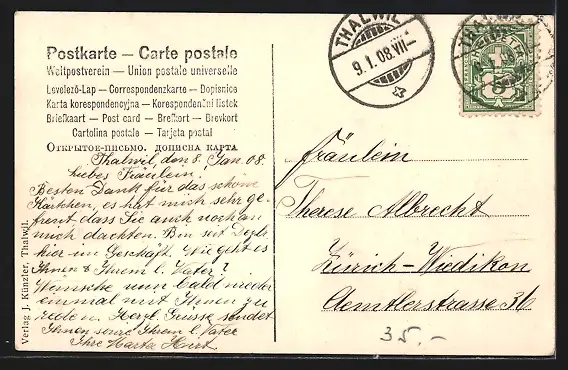 Postkarte — Carte postale
Weltpostverein — Union postale universelle
Levelező-Lap — Correspondenzkarte — Dopisnice
Karta korespondencyjna — Korespondenční lístek
Briefkaart — Post card — Brefkort — Brevkort
Cartolina postale — Tarjeta postal
Открытое-письмо. дописна карта
Thalwil, den 8. Jan. 08.
Liebes Fräulein!
Besten Dank für das schöne
Kärtchen, es hat mich sehr ge-
freut dass Sie auch noch an
mich dachten. Bin seit
hier im Geschäft. Wie geht es
Ihnen & Ihrem l. Vater?
Wünsche nun bald wieder
einmal mit Ihnen zu
reden. Herzl. Grüsse sendet
Ihnen sowie Ihrem l. Vater
Ihre Marta Hirt
Verlag J. Künzler, Thalwil.
THALWIL
9.I.08.VII-
Fräulein
Therese Albrecht
Zürich-Wiedikon
Aemtlerstrasse 36
35.-